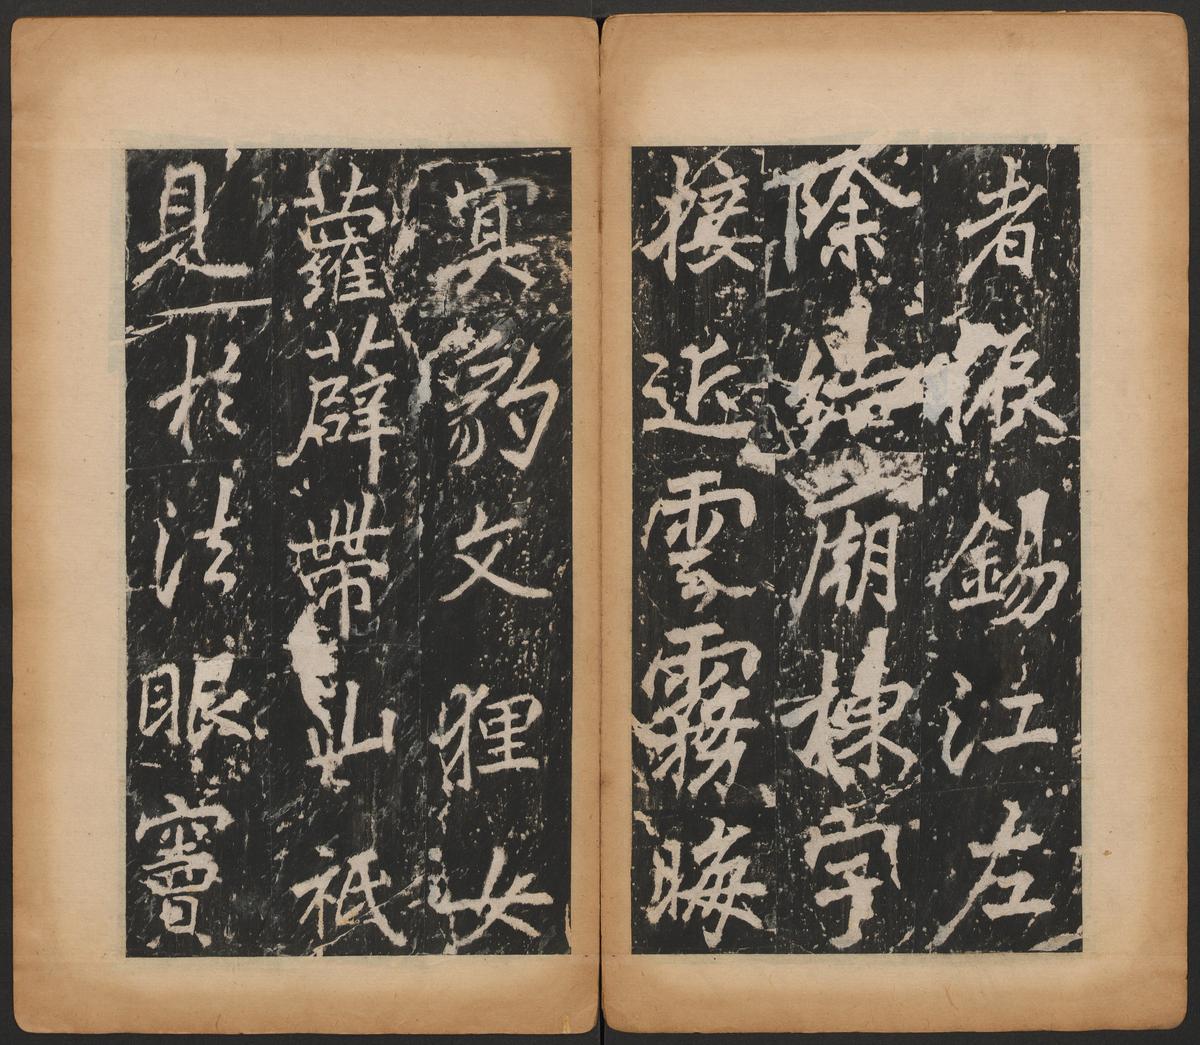 者振錫江左
除結廟棟宇
接近雲霧晦
冥豹文狸女
蘿薜帶山祇
見於法眼竇